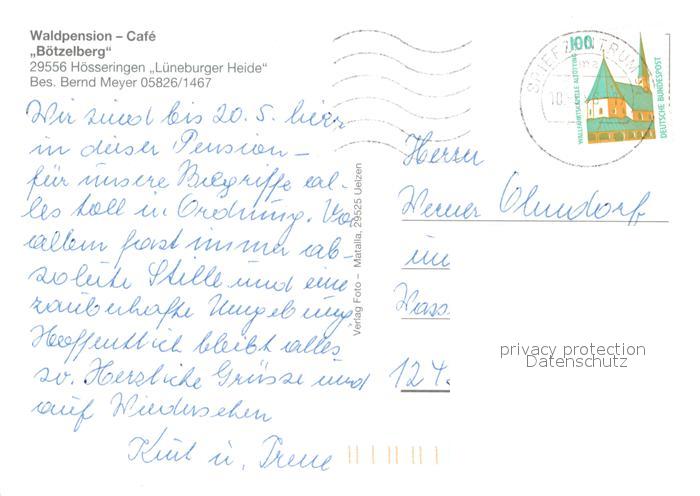 Waldpension – Café
„Bötzelberg“
29556 Hösseringen „Lüneburger Heide“
Bes. Bernd Meyer 05826/1467
Wir sind bis 20.5. hier
in dieser Pension –
für unsere Begriffe al-
les toll in Ordnung. Vor
allem fast immer ab-
solute Stille und eine
zauberhafte Umgebung.
Hoffentlich bleibt alles
so. Herzliche Grüsse und
auf Wiedersehen
Kurt u. Irene
Verlag Foto – Matalla, 29525 Uelzen
BRIEFZENTRUM
100
WALLFAHRTSKAPELLE ALTÖTTING
DEUTSCHE BUNDESPOST
Herrn
Werner
im
Wass
124
privacy protection
Datenschutz